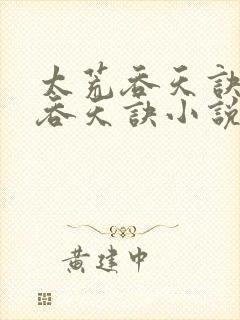 太荒吞天訣
吞天訣小說
黃建中